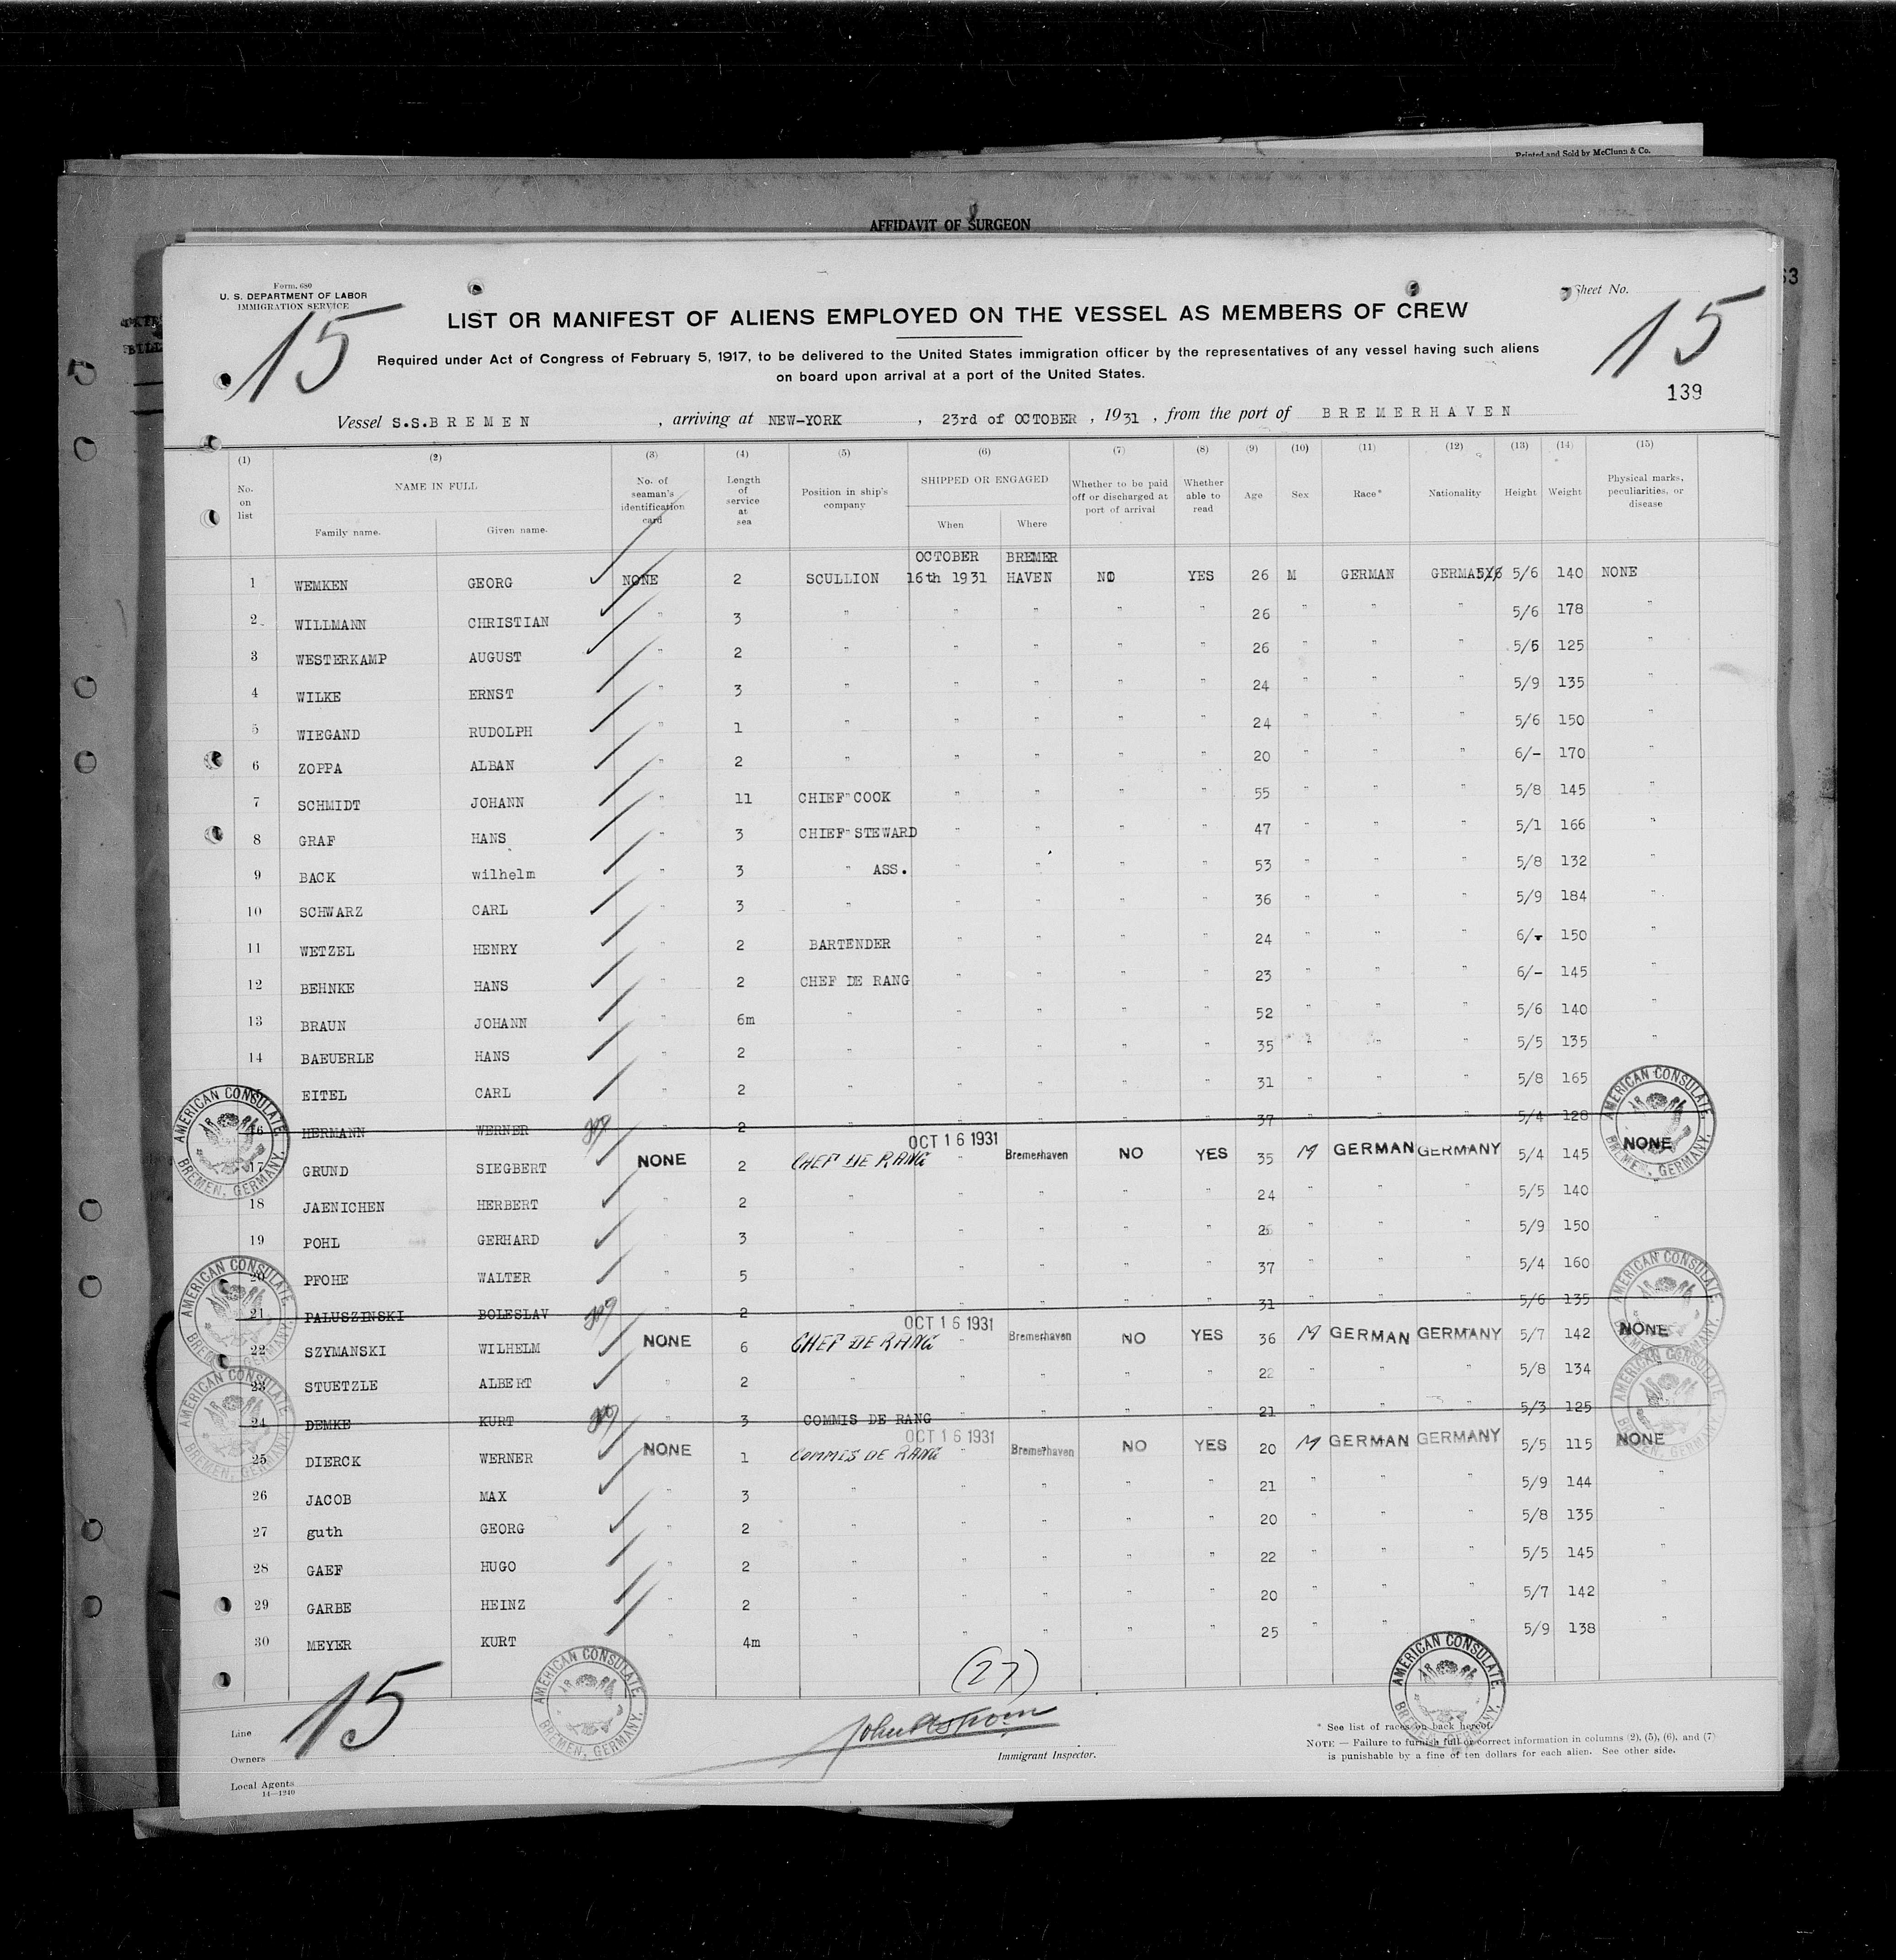 Printed and Sold by McClunn & Co.
AFFIDAVIT OF SURGEON
63
Form. 680
U. S. DEPARTMENT OF LABOR
IMMIGRATION SERVICE
Sheet No.
15
15
LIST OR MANIFEST OF ALIENS EMPLOYED ON THE VESSEL AS MEMBERS OF CREW
Required under Act of Congress of February 5, 1917, to be delivered to the United States immigration officer by the representatives of any vessel having such aliens
on board upon arrival at a port of the United States.
139
Vessel S.S.BREMEN , arriving at NEW-YORK , 23rd of OCTOBER , 1931 , from the port of BREMERHAVEN
(1) (2) (3) (4) (5) (6) (7) (8) (9) (10) (11) (12) (13) (14) (15)
No. on list NAME IN FULL Family name. Given name. No. of seaman's identification card Length of service at sea Position in ship's company SHIPPED OR ENGAGED When Where Whether to be paid off or discharged at port of arrival Whether able to read Age Sex Race* Nationality Height Weight Physical marks, peculiarities, or disease
OCTOBER BREMER
1 WEMKEN GEORG NONE 2 SCULLION 16th 1931 HAVEN NO YES 26 M GERMAN GERMA 5/6 5/6 140 NONE
2 WILLMANN CHRISTIAN " 3 " " " " " 26 " " " 5/6 178 "
3 WESTERKAMP AUGUST " 2 " " " " " 26 " " " 5/6 125 "
4 WILKE ERNST " 3 " " " " " 24 " " " 5/9 135 "
5 WIEGAND RUDOLPH " 1 " " " " " 24 " " " 5/6 150 "
6 ZOPPA ALBAN " 2 " " " " " 20 " " " 6/- 170 "
7 SCHMIDT JOHANN " 11 CHIEF"COOK " " " " 55 " " " 5/8 145 "
8 GRAF HANS " 3 CHIEF"STEWARD " " " " 47 " " " 5/1 166 "
9 BACK wilhelm " 3 " ASS. " " " " 53 " " " 5/8 132 "
10 SCHWARZ CARL " 3 " " " " " 36 " " " 5/9 184 "
11 WETZEL HENRY " 2 BARTENDER " " " " 24 " " " 6/- 150 "
12 BEHNKE HANS " 2 CHEF DE RANG " " " " 23 " " " 6/- 145 "
13 BRAUN JOHANN " 6m " " " " " 52 " " " 5/6 140 "
14 BAEUERLE HANS " 2 " " " " " 35 " " " 5/5 135 "
EITEL CARL " 2 " " " " " 31 " " " 5/8 165 "
16 HERMANN WERNER " 2 " " " " " 37 " " " 5/4 128
17 GRUND SIEGBERT NONE 2 CHEF DE RANG OCT 16 1931 " Bremerhaven NO YES 35 M GERMAN GERMANY 5/4 145 NONE
18 JAENICHEN HERBERT " 2 " " " " " 24 " " " 5/5 140 "
19 POHL GERHARD " 3 " " " " " 26 " " " 5/9 150 "
20 PFOHE WALTER " 5 " " " " " 37 " " " 5/4 160
21 PALUSZINSKI BOLESLAV " 2 " " " " " 31 " " " 5/6 135
22 SZYMANSKI WILHELM NONE 6 CHEF DE RANG OCT 16 1931 " Bremerhaven NO YES 36 M GERMAN GERMANY 5/7 142 NONE
23 STUETZLE ALBERT " 2 " " " " " 22 " " " 5/8 134 "
24 DEMKE KURT " 3 COMMIS DE RANG " " " " 21 " " " 5/3 125
25 DIERCK WERNER NONE 1 COMMIS DE RANG OCT 16 1931 " Bremerhaven NO YES 20 M GERMAN GERMANY 5/5 115 NONE
26 JACOB MAX " 3 " " " " " 21 " " " 5/9 144 "
27 guth GEORG " 2 " " " " " 20 " " " 5/8 135 "
28 GAEF HUGO " 2 " " " " " 22 " " " 5/5 145 "
29 GARBE HEINZ " 2 " " " " " 20 " " " 5/7 142 "
30 MEYER KURT " 4m " " " " " 25 " " " 5/9 138 "
AMERICAN CONSULATE, BREMEN, GERMANY.
AMERICAN CONSULATE, BREMEN, GERMANY.
AMERICAN CONSULATE, BREMEN, GERMANY.
AMERICAN CONSULATE, BREMEN, GERMANY.
AMERICAN CONSULATE, BREMEN, GERMANY.
AMERICAN CONSULATE, BREMEN, GERMANY.
AMERICAN CONSULATE, BREMEN, GERMANY.
AMERICAN CONSULATE, BREMEN, GERMANY.
(27)
15
Line
Owners
Local Agents
14—1240
Immigrant Inspector.
* See list of races on back hereof.
NOTE — Failure to furnish full or correct information in columns (2), (5), (6), and (7)
is punishable by a fine of ten dollars for each alien. See other side.